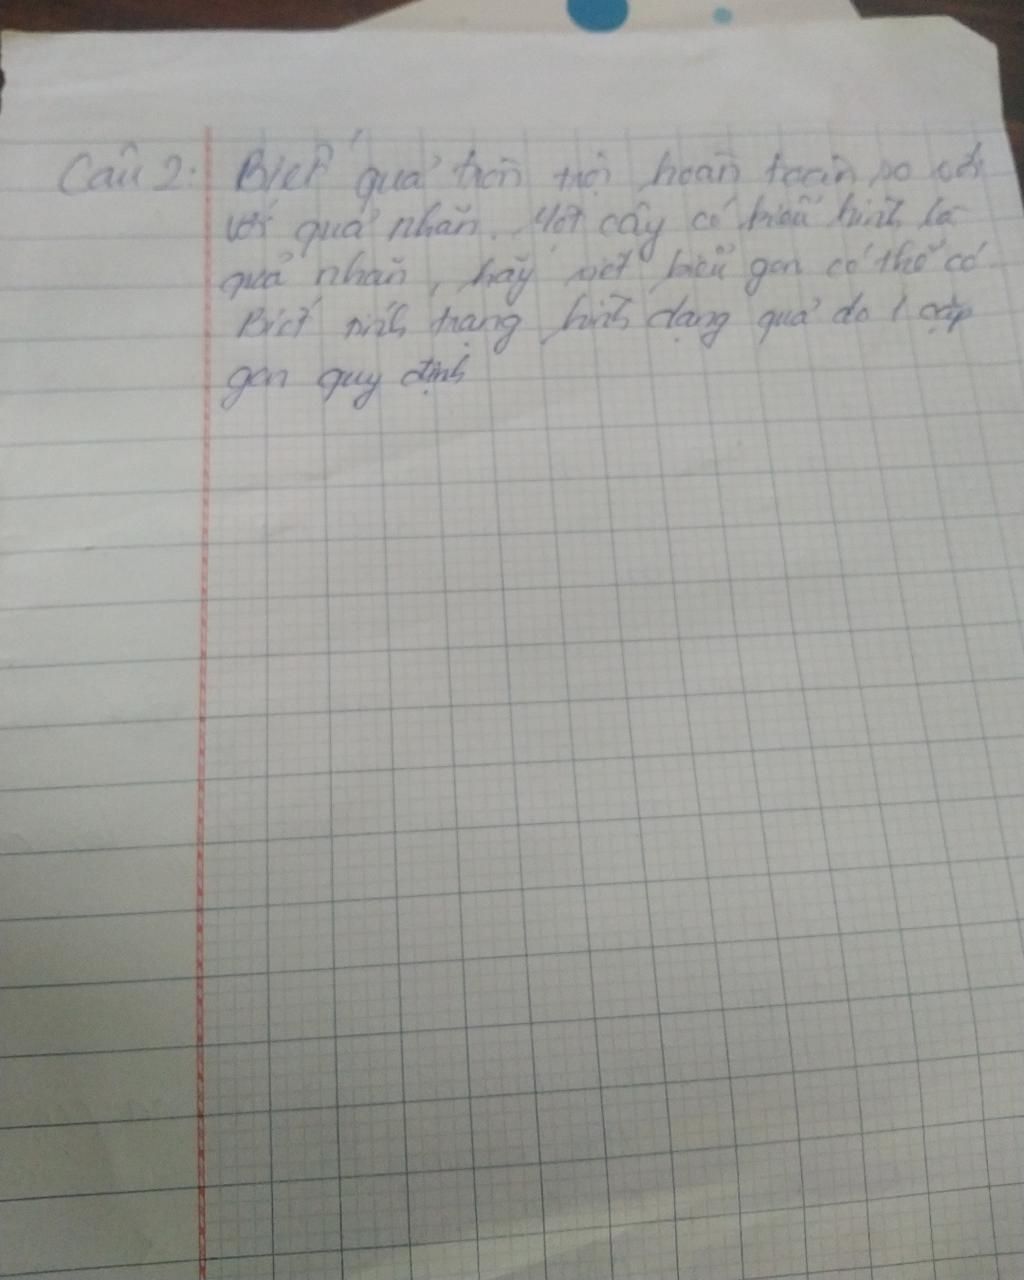 Câu 2: Biết quả tròn trội hoàn toàn so với
với quả nhăn. Một cây có kiểu hình là
quả nhăn, hãy viết kiểu gen có thể có
Biết tính trạng hình dạng quả do 1 cặp
gen quy định